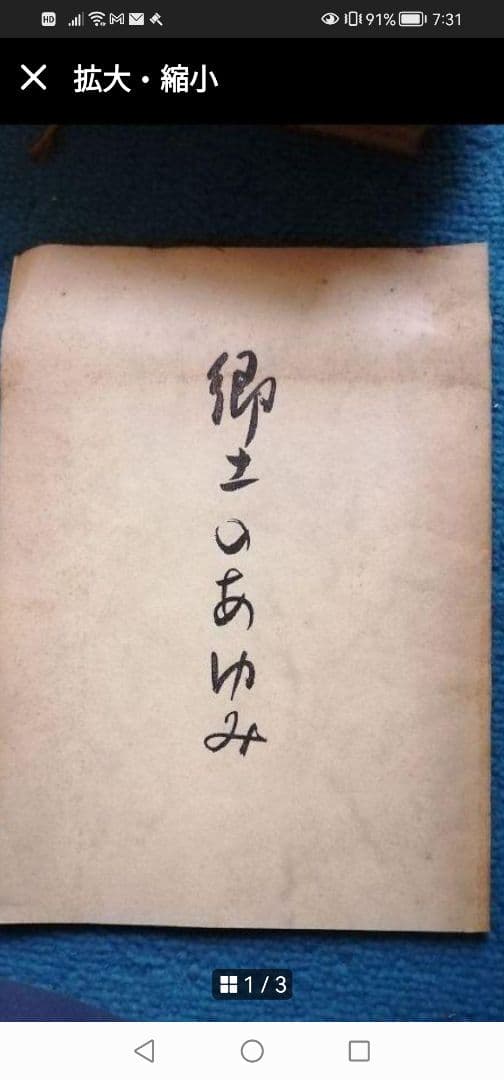 HD
91%
7:31
拡大・縮小
郷土のあゆみ
1 / 3